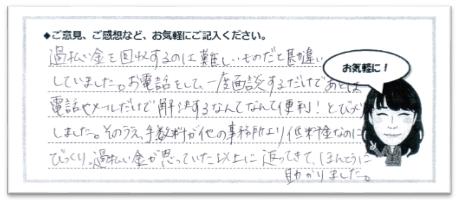 ◆ご意見、ご感想など、お気軽にご記入ください。
過払い金を回収するのは難しいものだと勘違い
していました。お電話をして、一度面談するだけであとは
電話やメールだけで解決するなんてなんて便利!とびっくり
しました。そのうえ、手数料が他の事務所より低料金なのに
びっくり。過払い金が思っていた以上に返ってきて、ほんとうに
助かりました。
お気軽に!